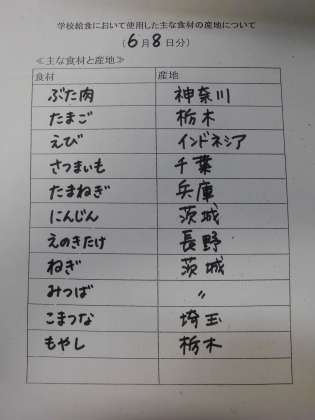 学校給食において使用した主な食材の産地について
(6月8日分)
≪主な食材と産地≫
食材 産地
ぶた肉 神奈川
たまご 栃木
えび インドネシア
さつまいも 千葉
たまねぎ 兵庫
にんじん 茨城
えのきたけ 長野
ねぎ 茨城
みつば 〃
こまつな 埼玉
もやし 栃木